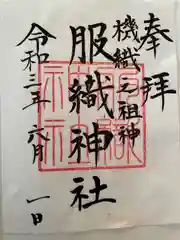 奉拝
機織之祖神
服織神社
令和三年六月一日